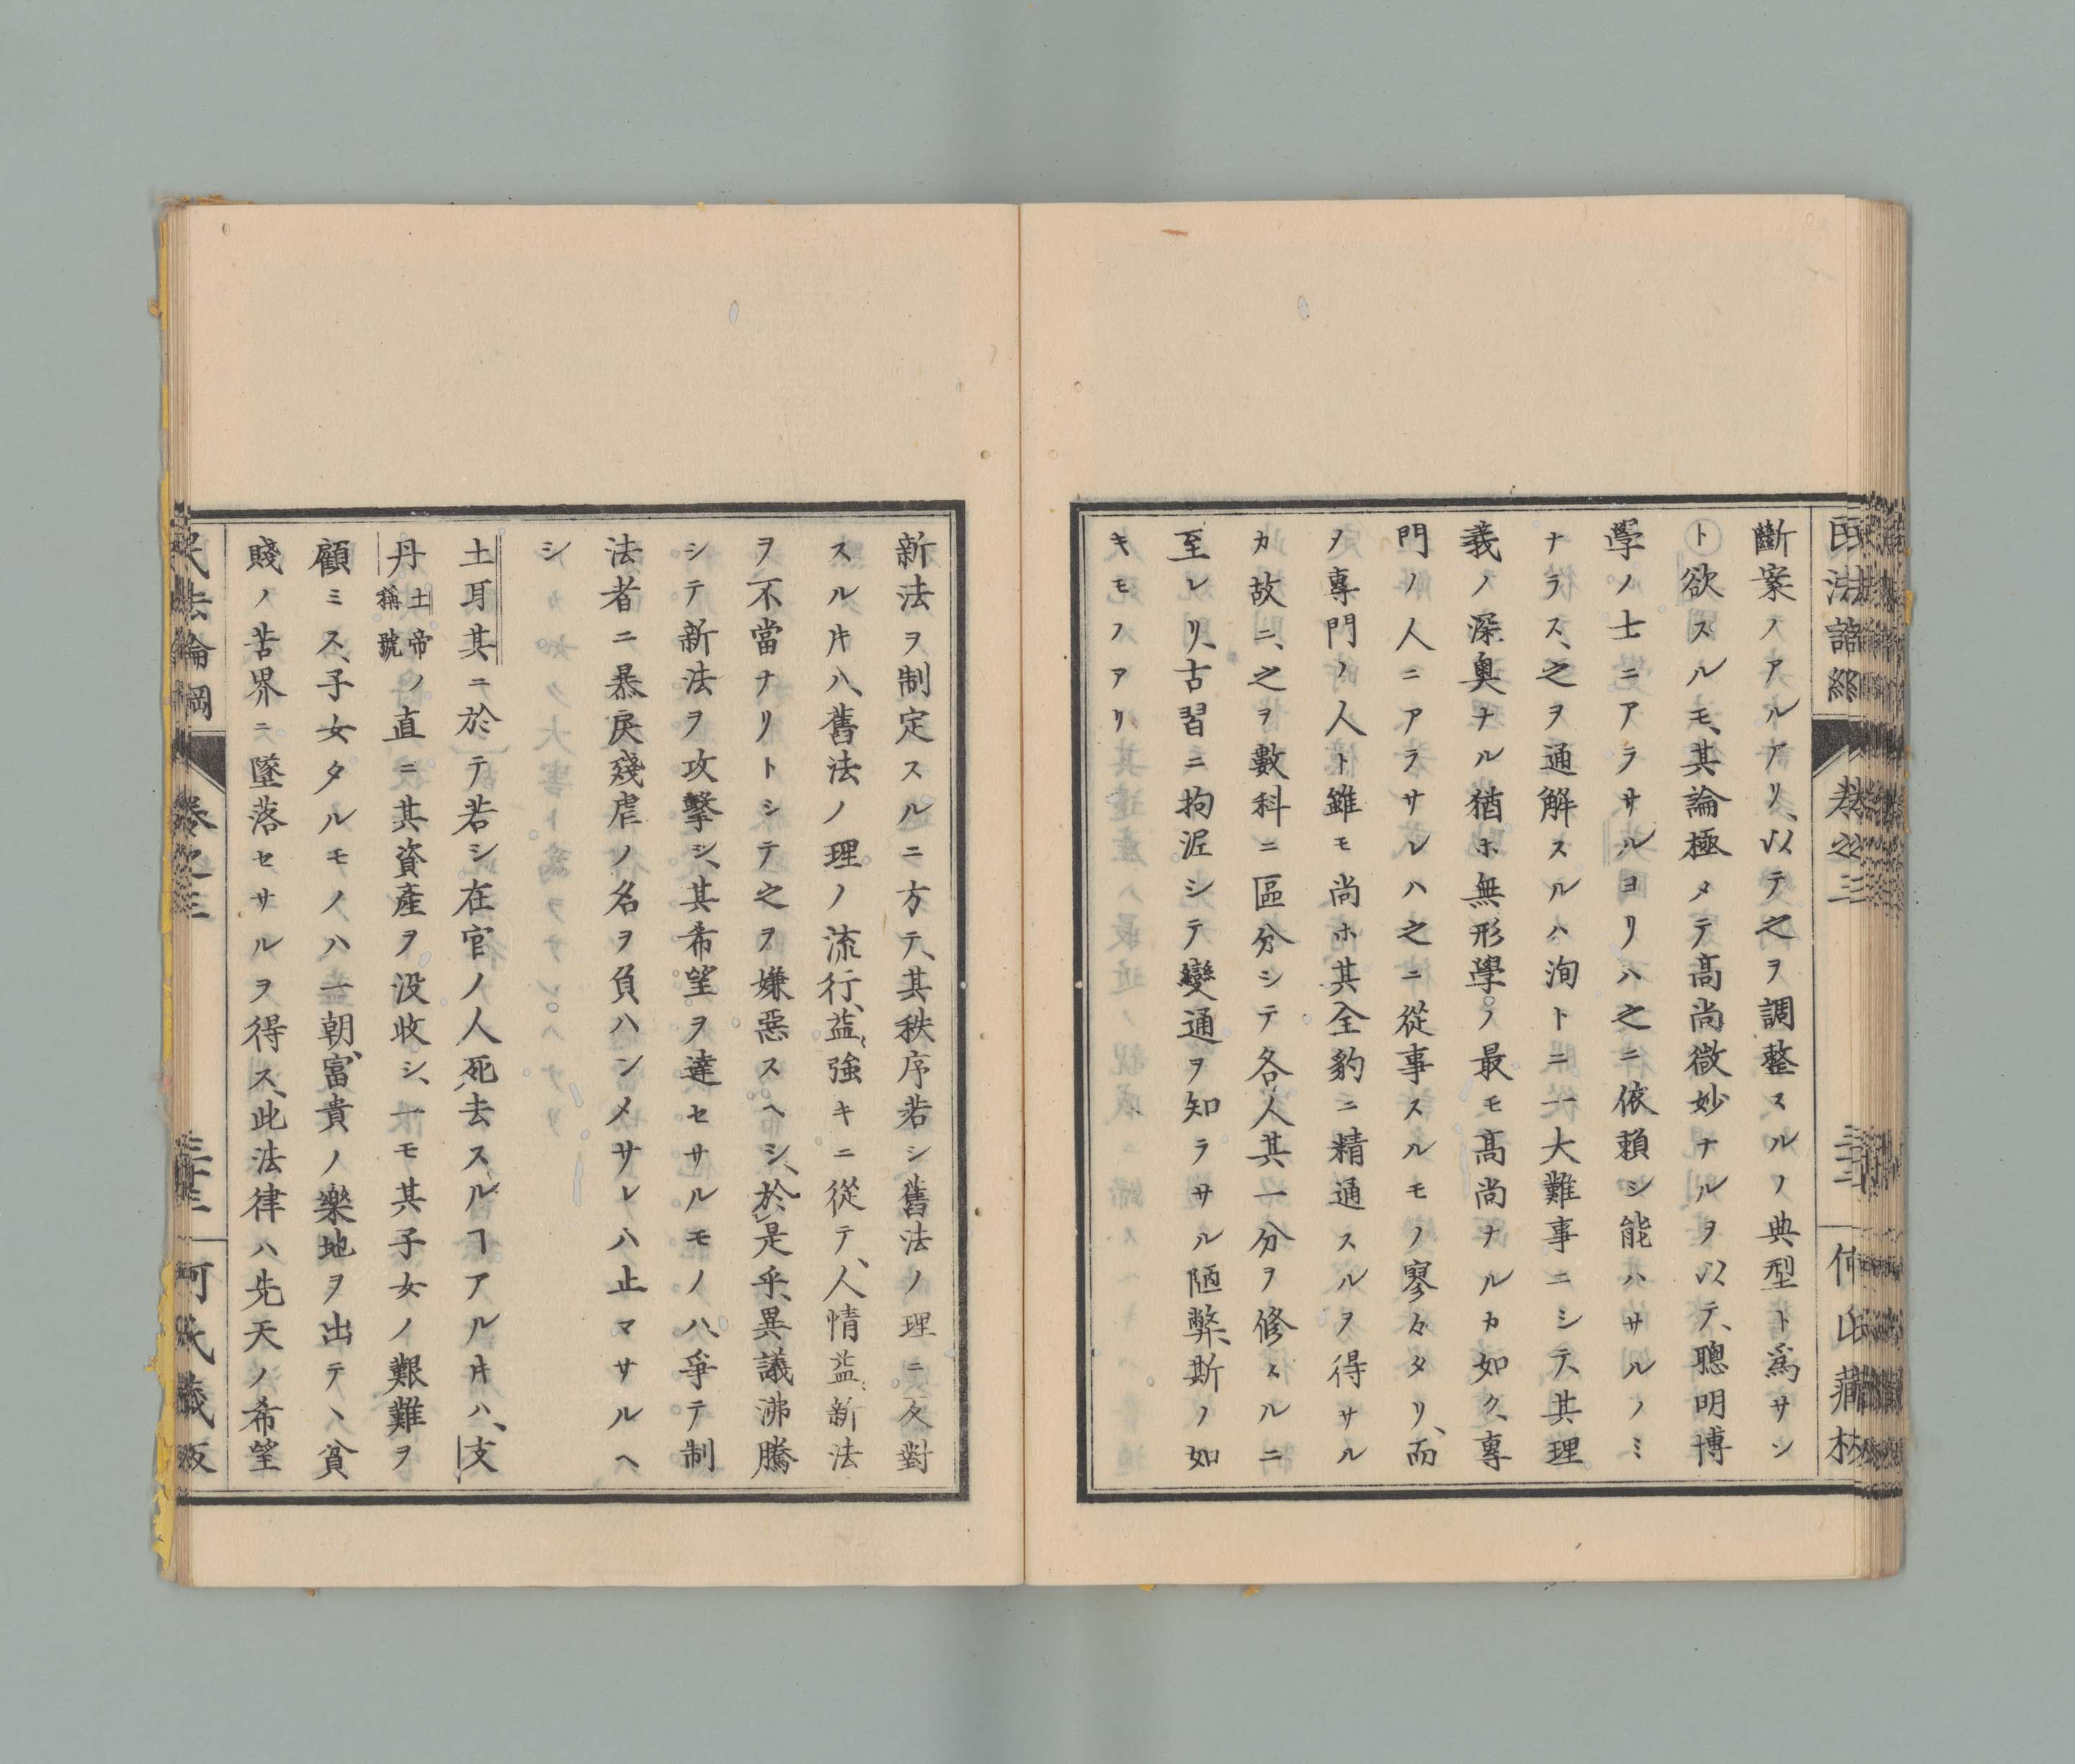 斷案ノアルアリ、以テ之ヲ調整スルノ典型ト爲サン
ト欲スルモ、其論極メテ高尚微妙ナルヲ以テ、聰明博
學ノ士ニアラサルヨリハ之ニ依賴シ能ハサルノミ
ナラス、之ヲ通解スルハ洵トニ一大難事ニシテ、其理
義ノ深奧ナル猶ホ無形學ノ最モ高尚ナルカ如ク、專
門ノ人ニアラサレハ之ニ從事スルモノ寥々タリ、而
ヲ專門ノ人ト雖モ尚ホ其全豹ニ精通スルヲ得サル
カ故ニ、之ヲ數科ニ區分シテ各人其一分ヲ修スルニ
至レリ、古習ニ拘泥シテ變通ヲ知ラサル陋弊、斯ノ如
キモノアリ
新法ヲ制定スルニ方テ、其秩序若シ舊法ノ理ニ反對
スル𪜈ハ、舊法ノ理ノ流行、益強キニ從テ、人情益新法
ヲ不當ナリトシテ之ヲ嫌惡スヘシ、於是乎、異議沸騰
シテ新法ヲ攻擊シ、其希望ヲ達セサルモノハ、爭テ制
法者ニ暴戾殘虐ノ名ヲ負ハシメサレハ止マサルヘ
シ
土耳其ニ於テ若シ在官ノ人死去スルヿアル𪜈ハ、支
丹土帝稱號ノ直ニ其資產ヲ没收シ、一モ其子女ノ艱難ヲ
顧ミス、子女タルモノハ一朝富貴ノ樂地ヲ出テヽ貧
賤ノ苦界ニ墜落セサルヲ得ス、此法律ハ先天ノ希望
民法論綱 卷之三 何氏藏版